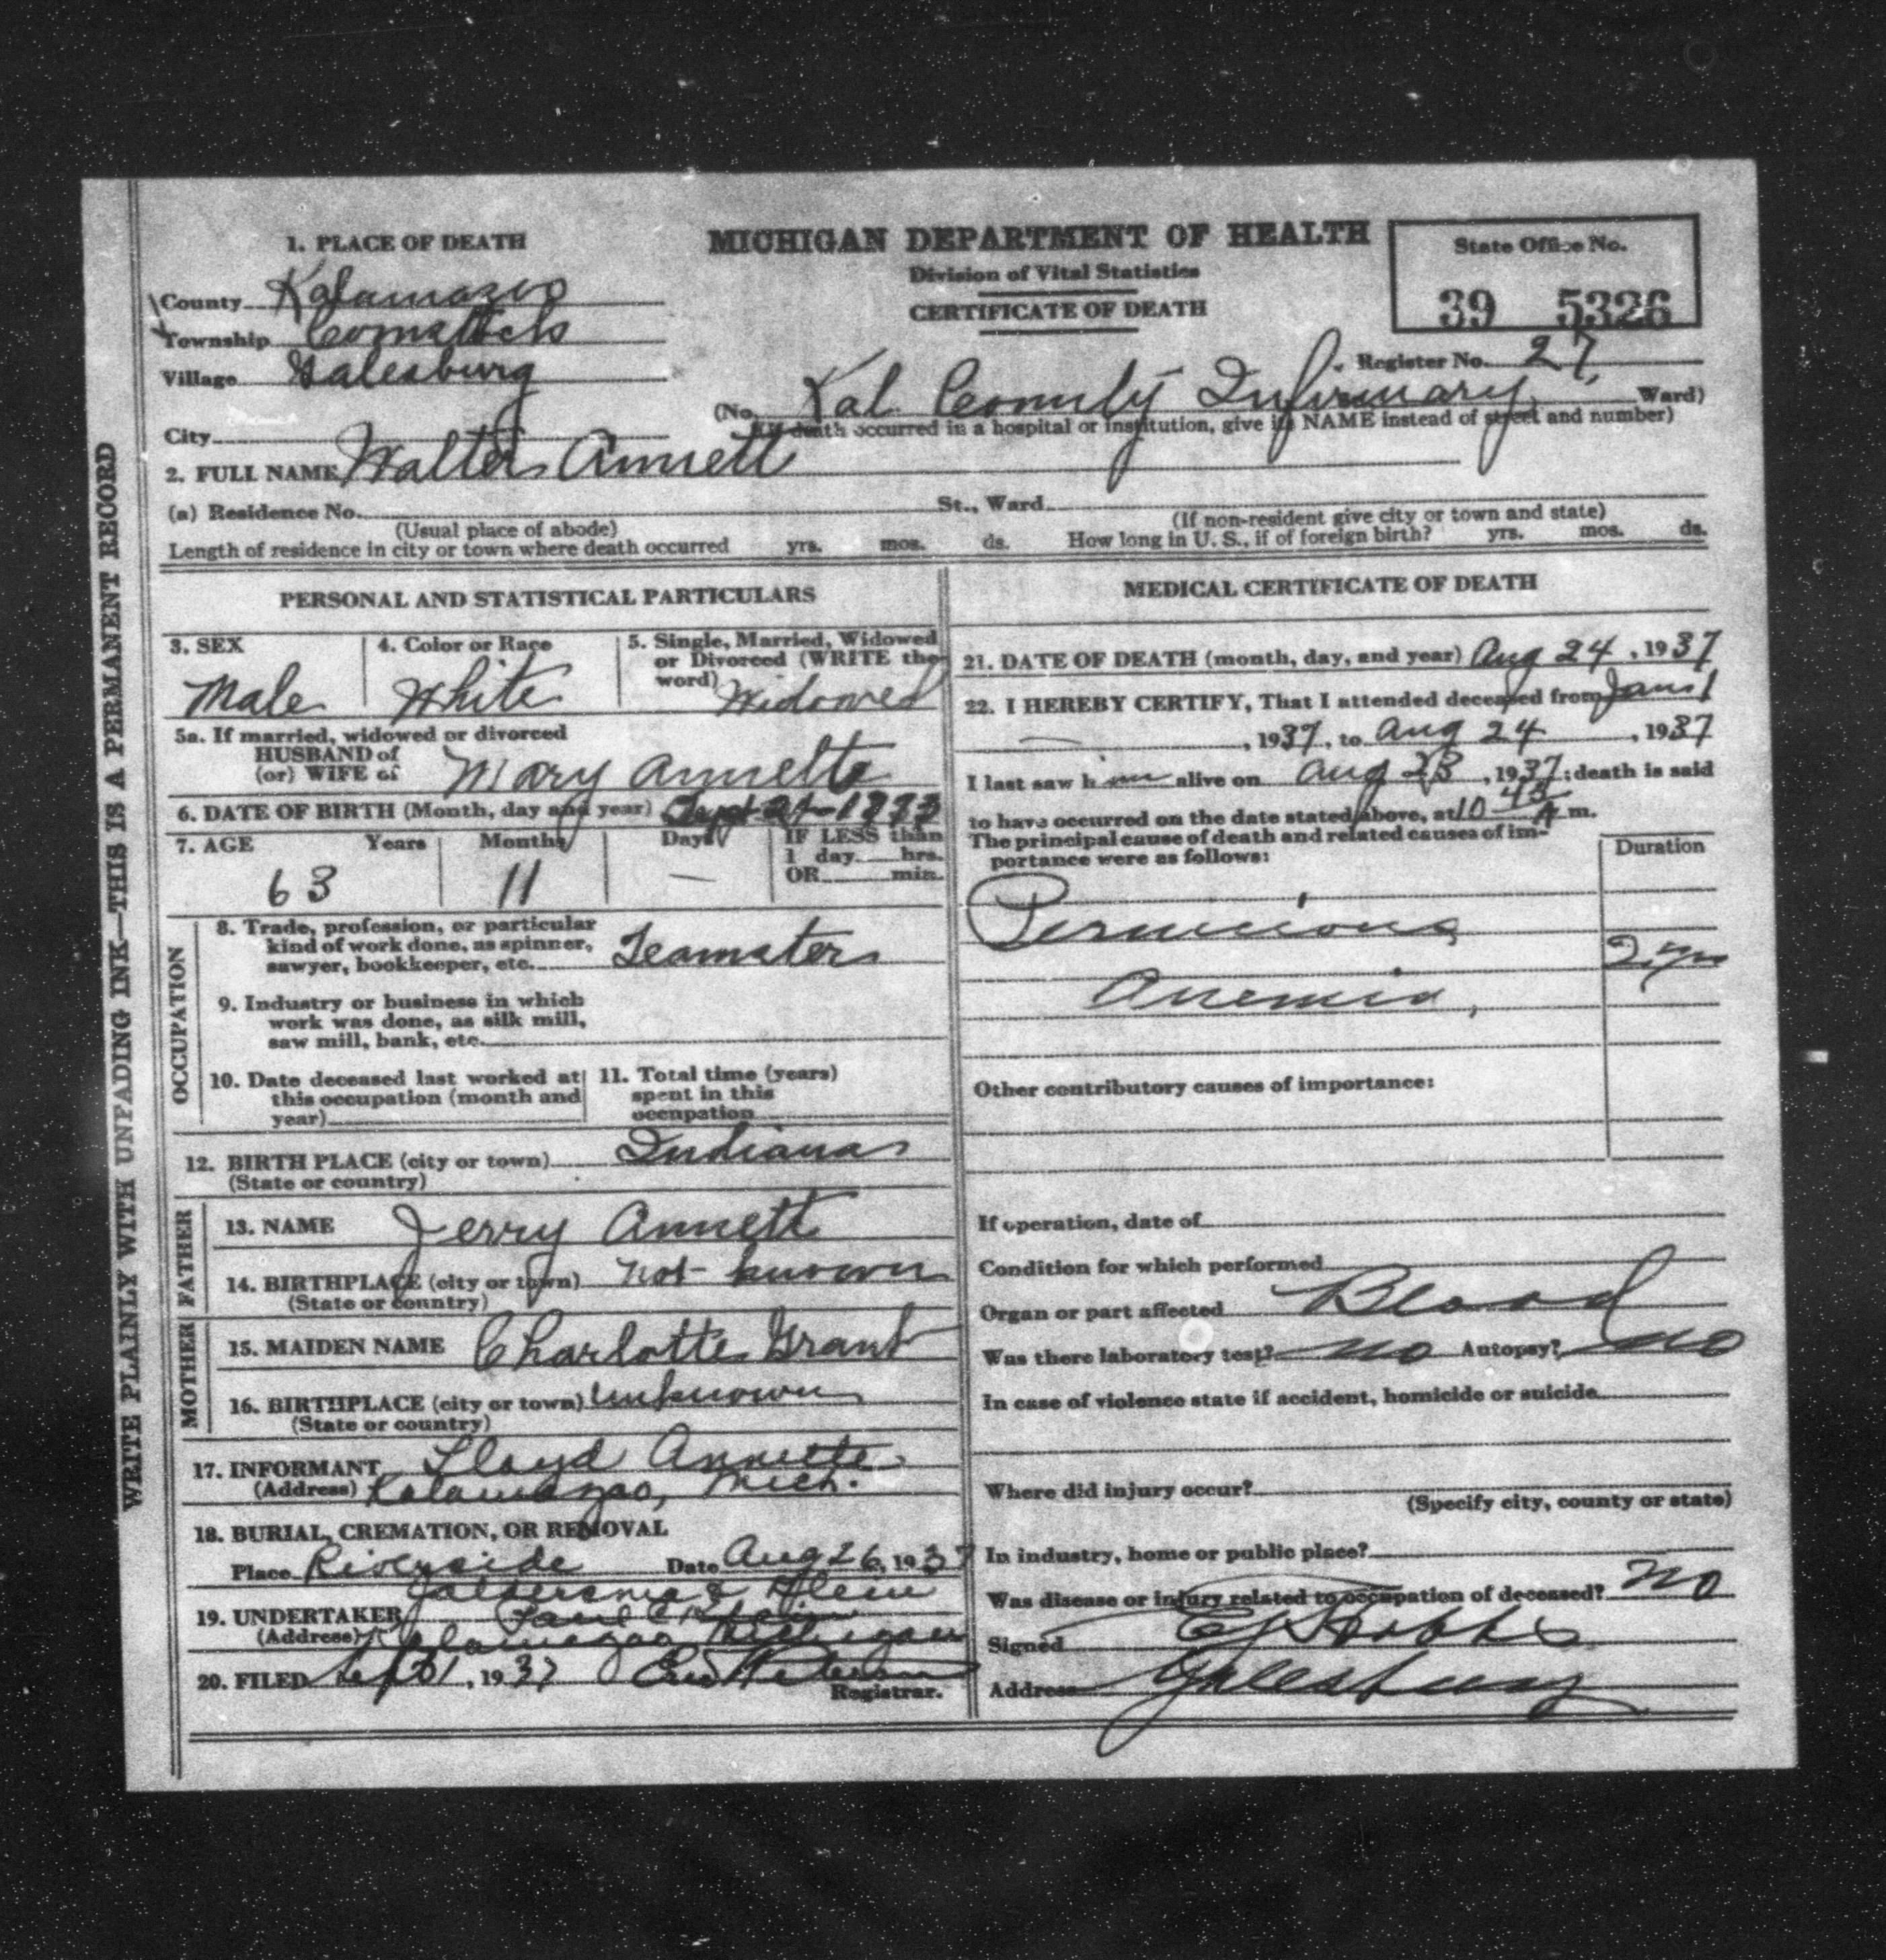 WRITE PLAINLY WITH UNFADING INK—THIS IS A PERMANENT RECORD
1. PLACE OF DEATH
MICHIGAN DEPARTMENT OF HEALTH
Division of Vital Statistics
CERTIFICATE OF DEATH
State Office No.
39 5326
County Kalamazoo
Township
Village Galesburg
City
Register No. 27
(No. Kal. County Infirmary, Ward)
(If death occurred in a hospital or institution, give its NAME instead of street and number)
2. FULL NAME Walter Annett
(a) Residence No. St., Ward
(Usual place of abode) (If non-resident give city or town and state)
Length of residence in city or town where death occurred yrs. mos. ds. How long in U. S., if of foreign birth? yrs. mos. ds.
PERSONAL AND STATISTICAL PARTICULARS
3. SEX
Male
4. Color or Race
White
5. Single, Married, Widowed
or Divorced (WRITE the
word) Widowed
5a. If married, widowed or divorced
HUSBAND of
(or) WIFE of Mary Annette
6. DATE OF BIRTH (Month, day and year) Sept 24-1873
7. AGE Years Months Days IF LESS than
1 day hrs.
OR min.
63 11 —
OCCUPATION
8. Trade, profession, or particular
kind of work done, as spinner,
sawyer, bookkeeper, etc. Teamster
9. Industry or business in which
work was done, as silk mill,
saw mill, bank, etc.
10. Date deceased last worked at
this occupation (month and
year)
11. Total time (years)
spent in this
occupation
12. BIRTH PLACE (city or town) Indiana
(State or country)
FATHER
13. NAME Jerry Annett
14. BIRTHPLACE (city or town) not known
(State or country)
MOTHER
15. MAIDEN NAME Charlotte Grant
16. BIRTHPLACE (city or town) unknown
(State or country)
17. INFORMANT Lloyd Annette
(Address) Kalamazoo, Mich.
18. BURIAL, CREMATION, OR REMOVAL
Place Riverside Date Aug 26, 1937
19. UNDERTAKER
(Address) Kalamazoo Michigan
20. FILED Sept 1, 1937
Registrar.
MEDICAL CERTIFICATE OF DEATH
21. DATE OF DEATH (month, day, and year) Aug 24, 1937
22. I HEREBY CERTIFY, That I attended deceased from Jan 1
—, 1937, to Aug 24, 1937
I last saw him alive on Aug 23, 1937; death is said
to have occurred on the date stated above, at 10 45 A m.
The principal cause of death and related causes of im-
portance were as follows:
Duration
Pernicious
2 yrs
Anemia,
Other contributory causes of importance:
If operation, date of
Condition for which performed
Organ or part affected Blood
Was there laboratory test? no Autopsy? no
In case of violence state if accident, homicide or suicide
Where did injury occur?
(Specify city, county or state)
In industry, home or public place?
Was disease or injury related to occupation of deceased? no
Signed
Address Galesburg